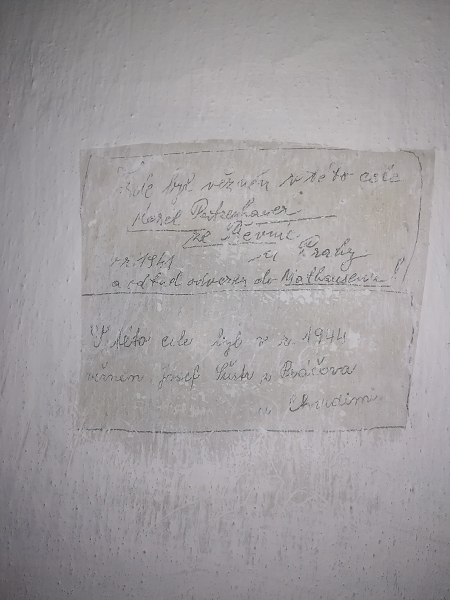 Zde byl vězněn v této cele
Karel
ze Řevnic
v r. 1941 u Prahy
a odtud odvezen do Mathausenu!
V této cele byl v r. 1944
vězněn Josef Šustr z
u Chrudim